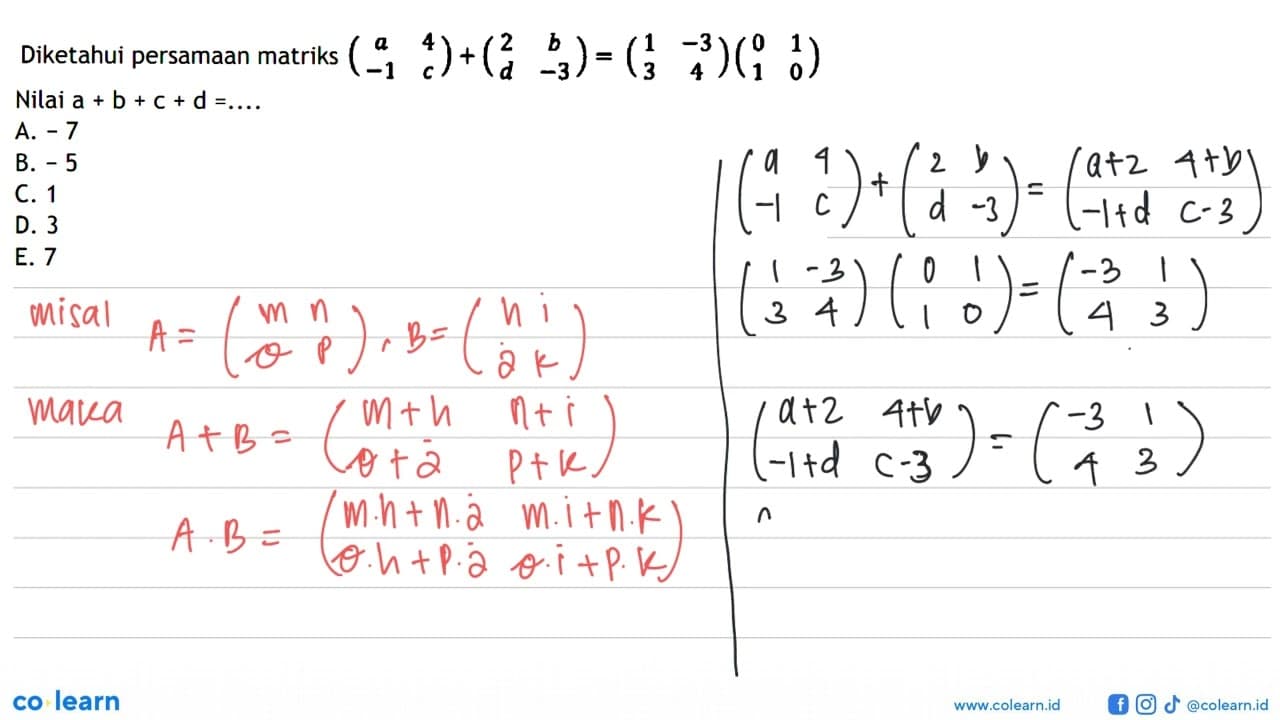 Diketahui persamaan matriks (a 4 -1 c) + (2 b d -3) = (1 -3 3 4)(0 1 1 0)
Nilai a + b + c + d =....
A. - 7
B. - 5
C. 1
D. 3
E. 7
misal A = (m n o p), B = (h i j k)
maka A + B = (m+h n+i o+j p+k)
A . B = (m.h+n.j m.i+n.k o.h+p.j o.i+p.k)
(a 4 -1 c) + (2 b d -3) = (a+2 4+b -1+d c-3)
(1 -3 3 4) (0 1 1 0) = (-3 1 4 3)
(a+2 4+b -1+d c-3) = (-3 1 4 3)
co learn
www.colearn.id
@colearn.id